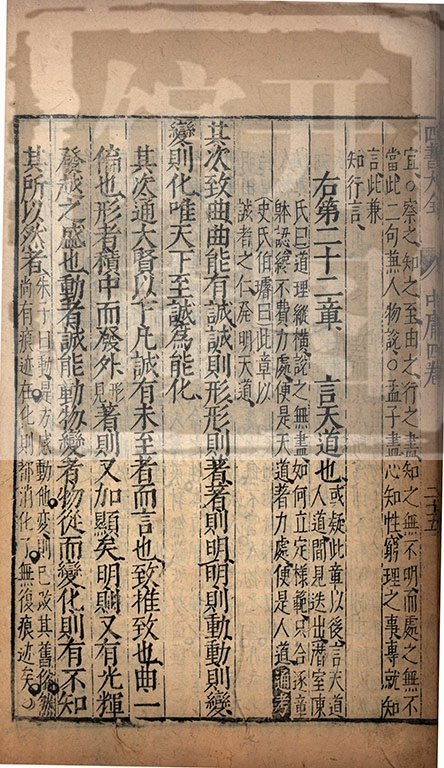 四書大全 中庸四卷 二十五
宜。察之知之至由之行之盡知之無不明而處之無不
當此二句無人物說。孟子盡心知性窮理之事專就知
言此兼
知行言
右第二十二章 言天道也
或疑此章以後言天道
人道間見迭出潛室陳
氏曰道理縱橫說之無盡如何立定樣範只合逐章
體認總不費力處便是天道著力處便是人道 通考
史氏伯璿曰此章以
誠者之仁發明天道
其次致曲曲能有誠誠則形形則著著則明明則動動則變
變則化唯天下至誠為能化
其次通大賢以下凡誠有未至者而言也致推致也曲一
偏也形者積中而發外形見著則又加顯矣明則又有光輝
發越之盛也動者誠能動物變者物從而變化則有不知
其所以然者
朱子曰動是方感動他變則已改其舊俗然
尚有痕迹在化則都消化了無復痕迹矣